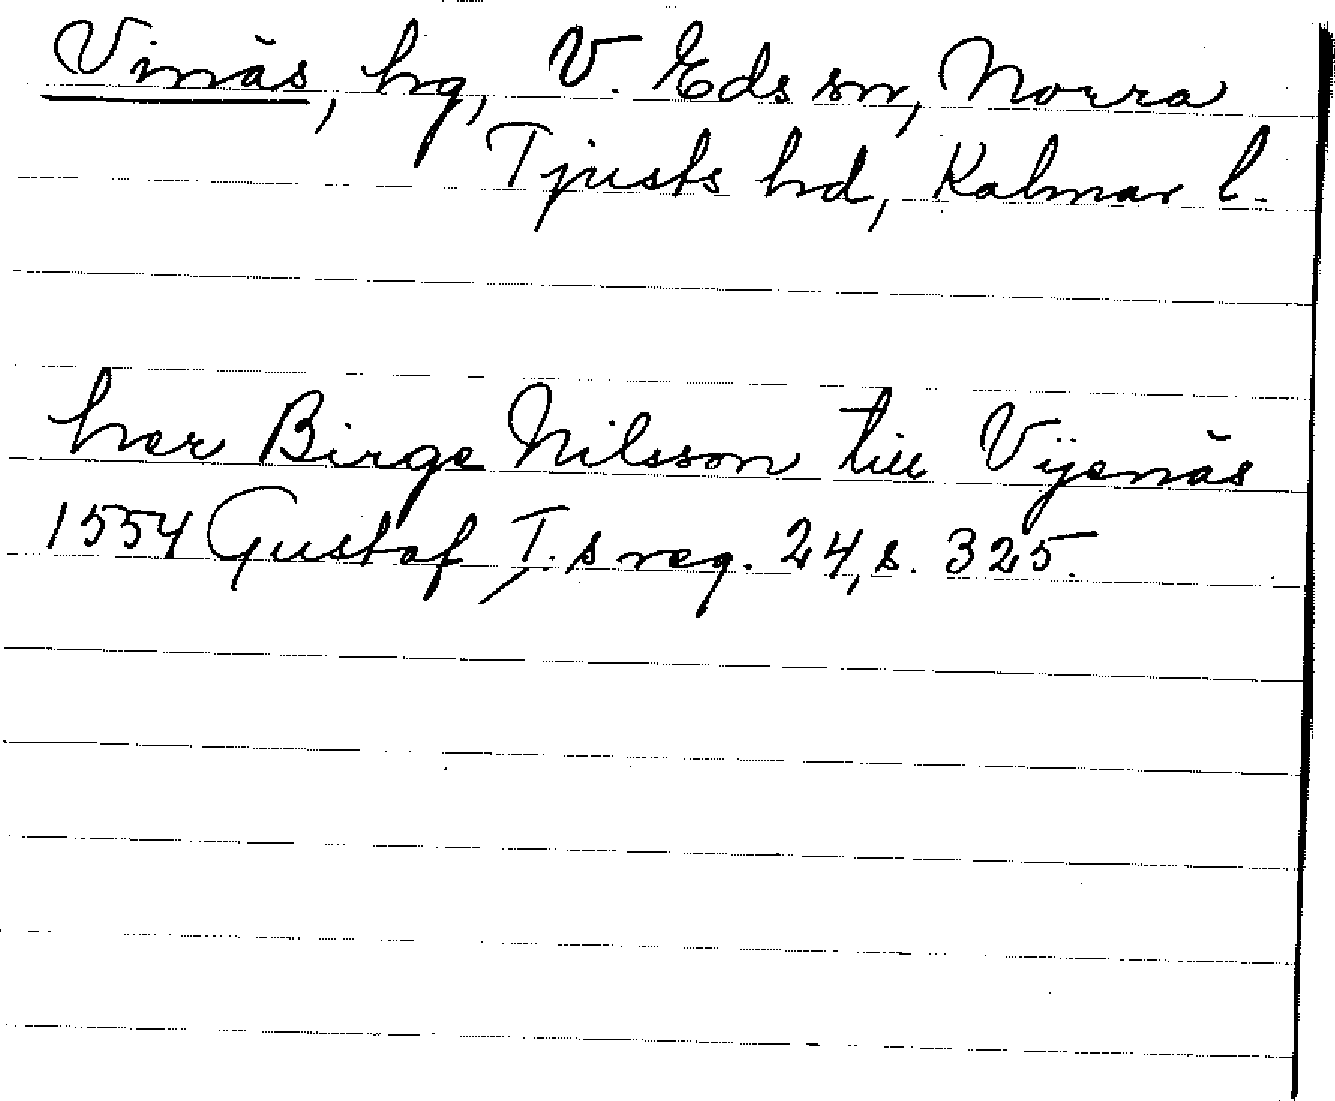 Vinäs, hg, V. Eds sn, Norra
Tjusts hd, Kalmar l.
her Birge Nilsson till Vijenäs
1554 Gustaf I.s reg. 24, s. 325.